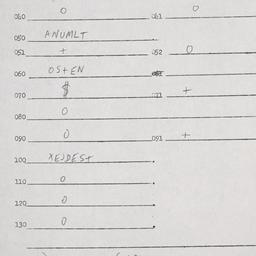 040 O 041 O
050 ANUMLT
051 + 052 O
060 OSTEN
070 $ 071 +
080 O
090 O 091 +
100 XEJDEST
110 O
120 O
130 O